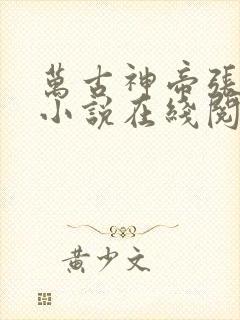 萬古神帝張
小說在綫閱
黃少文